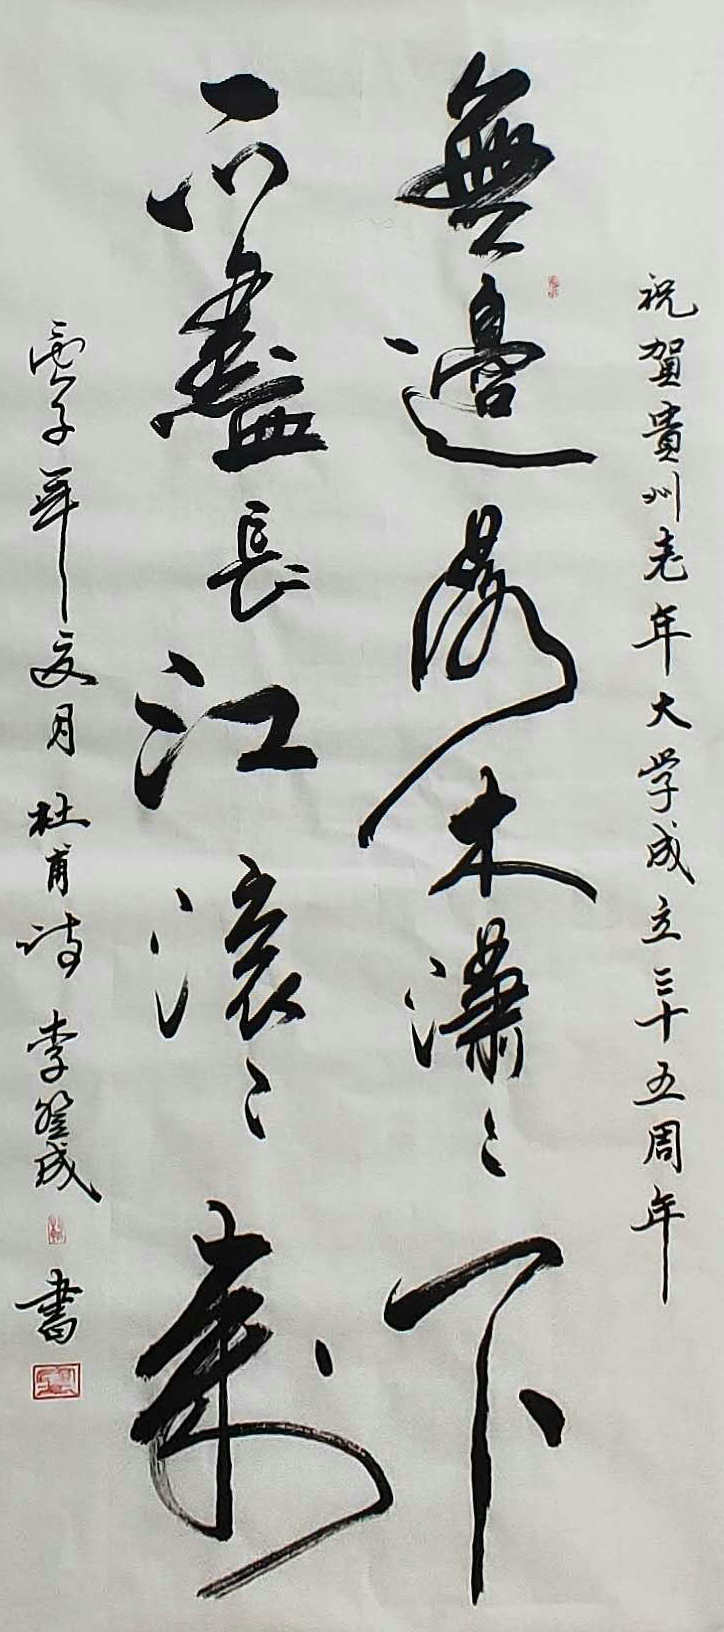 祝賀貴州老年大学成立三十五周年
無邊落木瀟〻下
不盡長江滚〻来
庚子年夏月 杜甫诗 李登成 書